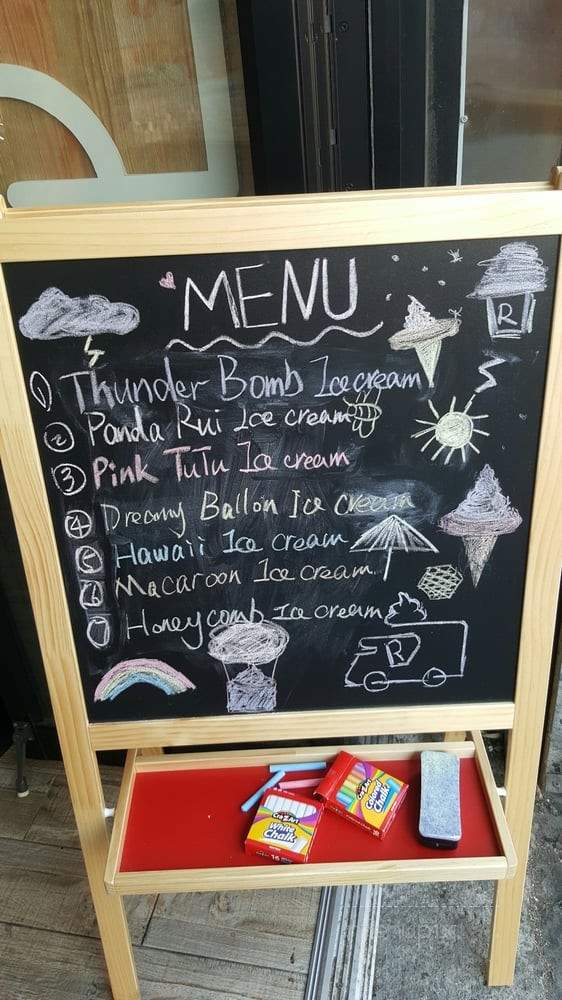 MENU
R
1 Thunder Bomb Ice cream
2 Panda Rui Ice cream
3 Pink TuTu Ice cream
4 Dreamy Ballon Ice cream
5 Hawaii Ice cream
6 Macaroon Ice cream
7 Honeycomb Ice cream
R
Cra-Z-Art
Colored
Chalk
Cra-Z-Art
White
Chalk
16